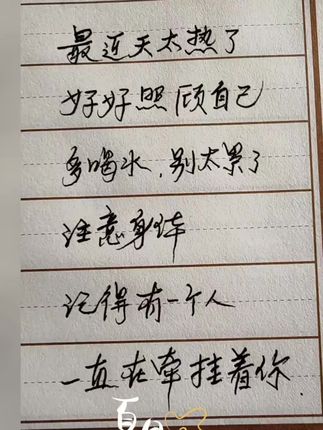 最近天太热了
好好照顾自己
多喝水,别太累了
注意身体
记得有一个人
一直在牵挂着你.